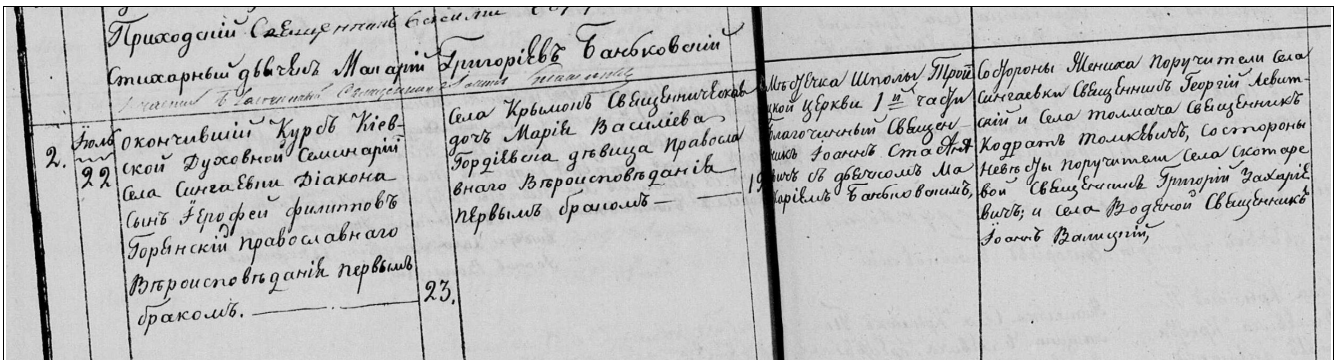 Приходскій Священникъ Василій
Стихарный дьячекъ Макарій Григоріевъ Баньковскій
2.
Іюль
22
окончившій Курсъ Кіев-
ской Духовной Семинаріи
села Сингаевки Діакона
сынъ Іерофей Филиповъ
Горянскій православнаго
Вѣроисповѣданія первымъ
бракомъ.
23.
Села Крымокъ Священническая
дочь Марія Василіева
Гордіевска дѣвица правосла
внаго Вѣроисповѣданія
первымъ бракомъ
19
Мѣстечка Шполы Трой
цкой церкви 1й части
Благочинный Священ-
никъ Іоаннъ
съ дьячкомъ Ма
каріемъ Баньковскимъ,
Со стороны Жениха поручители села
Сингаевки Священникъ Георгій Левит-
скій и села Толмача Священникъ
Кодратъ Толкевичъ, со стороны
Невѣсты поручители села Скотаре
вой Священникъ Григорій Захаріе
вичъ; и села Водяной Священникъ
Іоаннъ Валицкій,